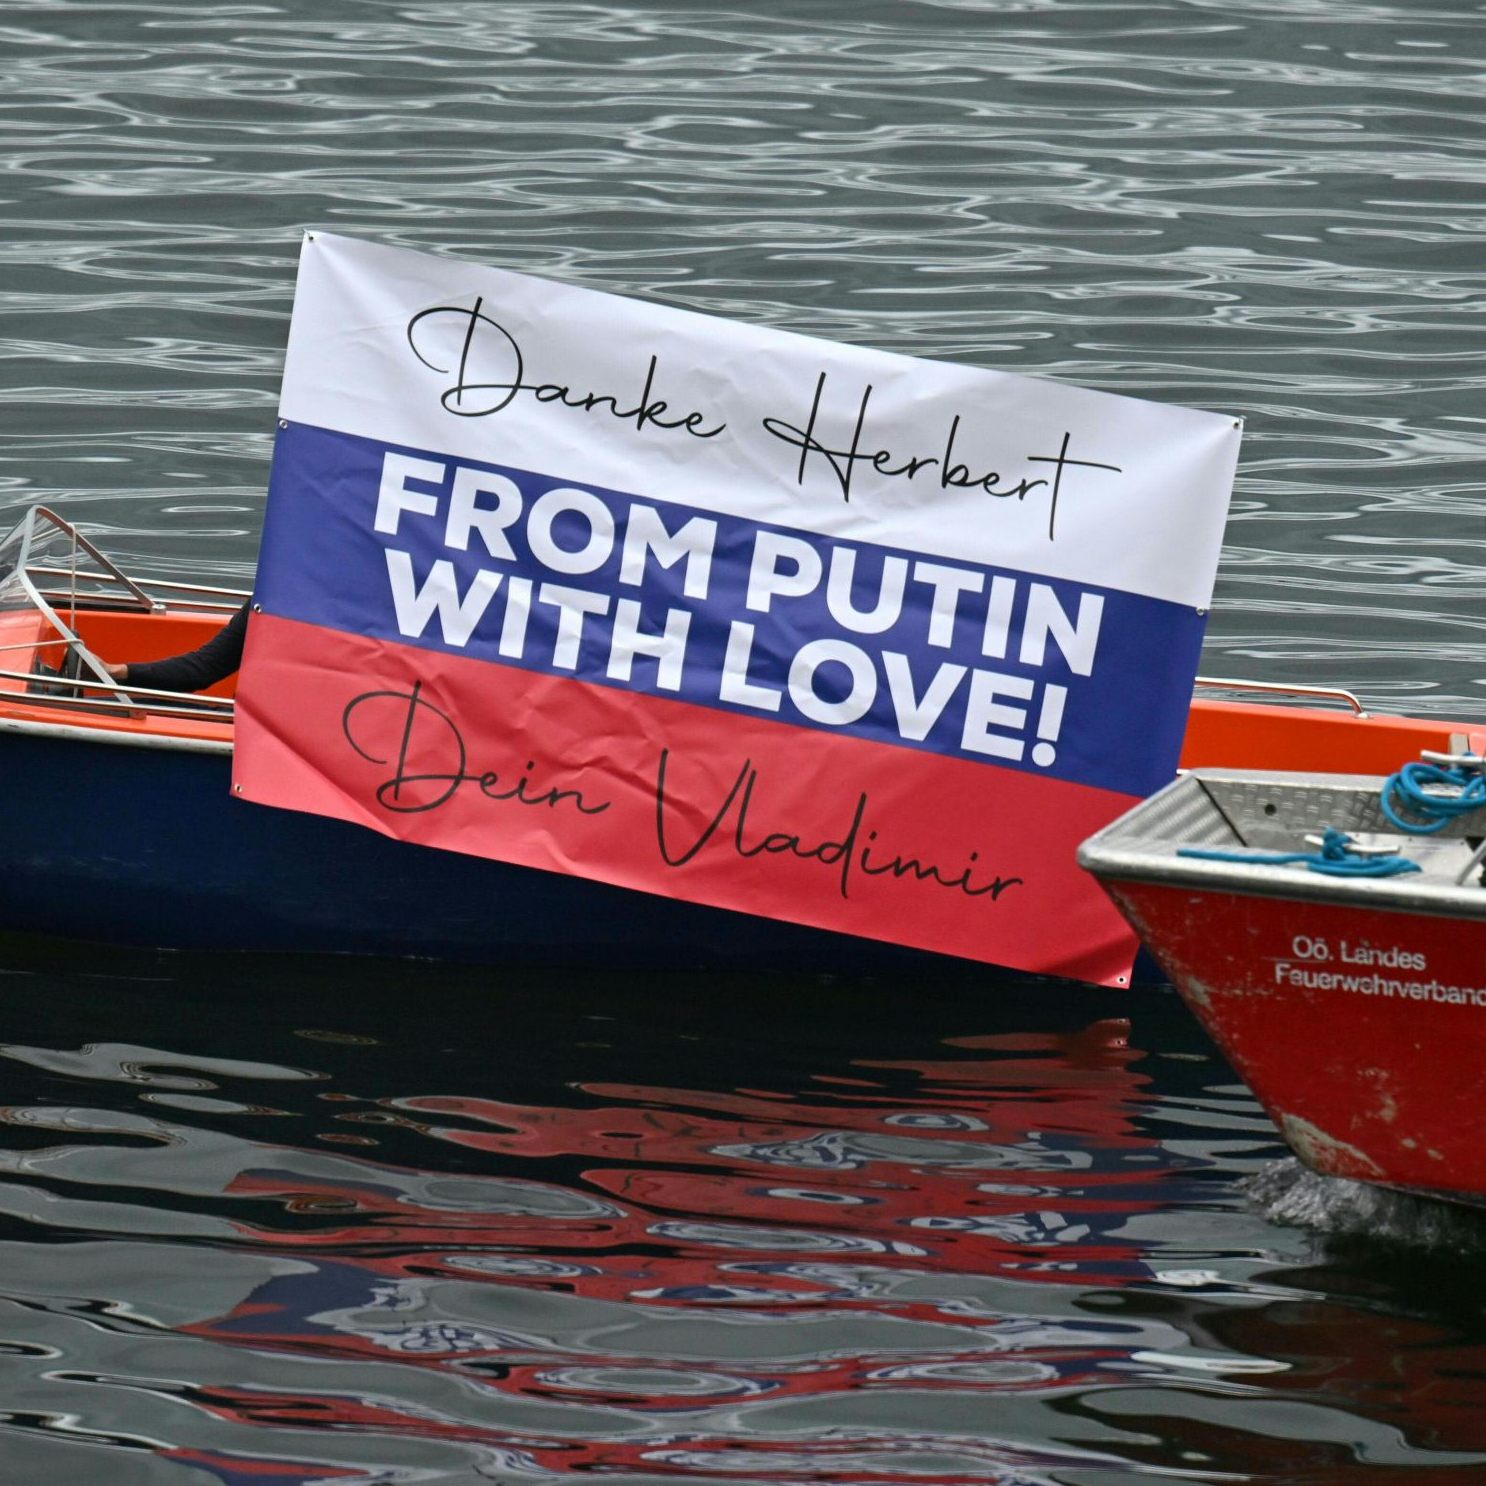 Danke Herbert
FROM PUTIN
WITH LOVE!
Dein Vladimir
Oö. Landes
Feuerwehrverband